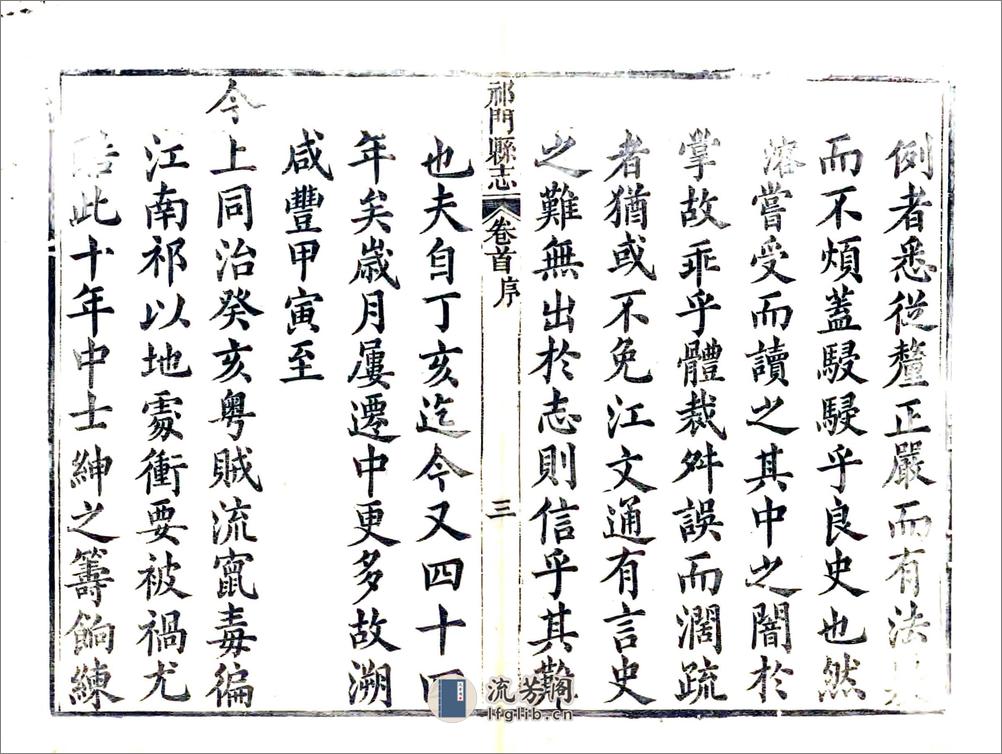 例者悉從釐正嚴而有法
而不煩蓋駸駸乎良史也然
溶嘗受而讀之其中之闇於
掌故乖乎體裁舛誤而濶疏
者猶或不免江文通有言史
之難無出於志則信乎其難
祁門縣志
卷首序
三
也夫自丁亥迄今又四十四
年矣歲月屢遷中更多故溯
咸豐甲寅至
今上同治癸亥粵賊流竄毒徧
江南祁以地處衝要被禍尤
酷此十年中士紳之籌餉練
流芳閣
lfglib.cn